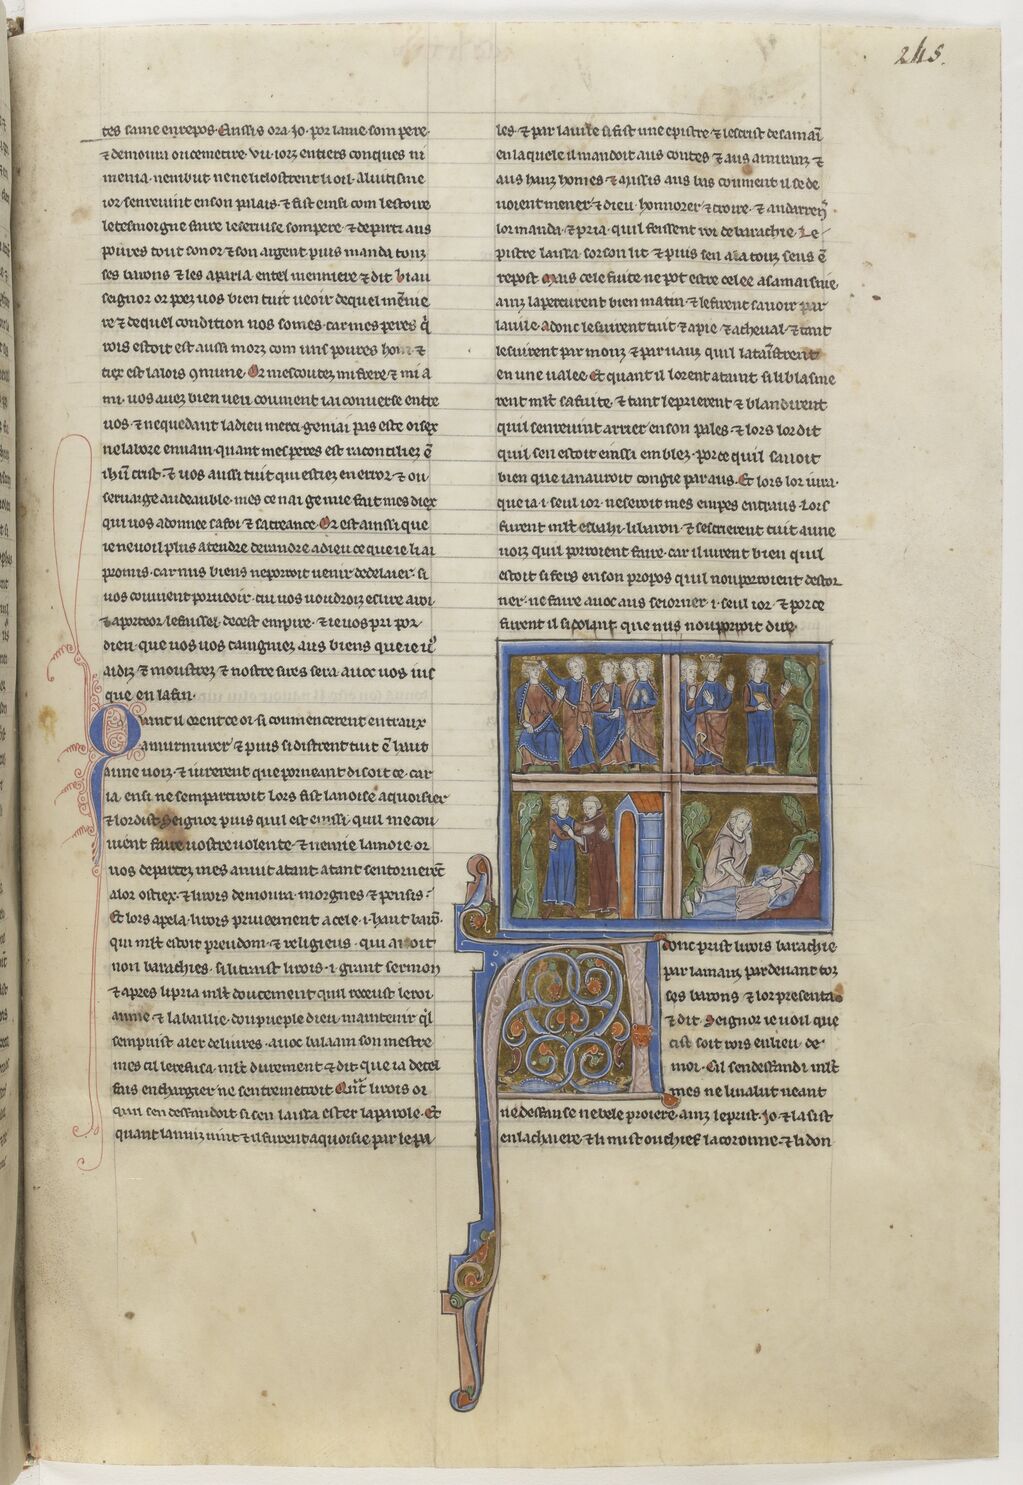 245.
tes saine en repos. Aussis ora Jo. por lame son pere.
⁊ demoura ou cemetire. vii. iorz entiers conques ni
menia. ne ni but ne ne li clostrent li oil. A luitisme
ior sen reuint en son palais. ⁊ fist einsi com lestoire
le tesmoigne faire le seruise son pere. ⁊ departi aus
poures tout son or ⁊ son argent puis manda touz
ses barons ⁊ les aparla en tel menniere ⁊ dit biau
seignor or poez uos bien tuit ueoir de quel meniue
re ⁊ de quel condition nos somes. car mes peres q̃
rois estoit est ausi morz com uns poures hom ⁊
tiex est la lois 9mune. Or mescoutez mi frere ⁊ mi a
mi. uos auez bien ueu coument iai conuerse entre
uos. ⁊ ne quedant la dieu merci geniai pas este oisex
ne labore en uain. quant mes peres est raconciliez ẽ
ihũ crist. ⁊ uos aussi tuit qui estiez en error ⁊ ou
seruage au deauble. mes ce nai ge mie fait mes diex
qui uos a donnee sa foi ⁊ sa creance. Or est ainsi que
ie ne uoil plus atendre de randre a dieu ce que ie li ai
promis. car nus biens ne porroit uenir de delaier. si
uos couuient porueoir. cui uos uoudroiz eslire a roi
⁊ a porteor le faissel de cest empire. ⁊ ie uos pri por
dieu. que uos uos tauigniez aus biens que ie ui9
ai diz ⁊ moustrez ⁊ nostre sires sera auoc uos ius
que en la fin.
Quant il orent ce oi si coumencerent entraux
a murmurer ⁊ puis si distrent tuit ẽ haut
a une uoiz. ⁊ iurerent que por neant disoit ce. car
ia ensi ne sem partiroit lors fist la noise aquoisier
⁊ lor dist. Seignor puis quil est einssi. quil me cou
uient faire uostre uolente. ⁊ uenue la moie or
uos departez mes anuit atant atant sen tornerẽt
a lor ostiex. ⁊ li rois demoura. morgnes ⁊ pensis.
Et lors apela. li rois priueement a cele. i. haut barõ.
qui mlt estoit preudom. ⁊ religieus. qui auoit
non barachies. si li traist li rois. i. grant sermon
⁊ apres li pria mlt doucement quil receust le roi
aume ⁊ la baillie. dou pueple dieu. maintenir q̃l
sempuist aler deliures. auoc balaam son mestre
mes cil le refusa. mlt durement ⁊ dit que ia de tel
fais en chargier ne sentremetroit. Qñt li rois or
quil sen deffandoit si sen laissa ester la parole. Et
quant la nuiz uint ⁊ il furent aquoisie par le pa
les. ⁊ par la uile si fist une epistre ⁊ lescrist de sa maĩ
en la quele il mandoit aus contes ⁊ aus amiranz ⁊
aus hauz homes ⁊ aussis aus bas coument il se de
uoient mener ⁊ dieu. honnorer ⁊ croire. ⁊ an darreñ
lor manda. ⁊ pria. quil feissent roi de barachie. Le
pistre laissa sor son lit ⁊ puis sen ala touz seus ẽ
repost. Mais cele fuite ne pot estre celee a sa maisnie.
ainz laperçurent bien matin. ⁊ le firent sauoir par
la uile. adonc le suirent tuit ⁊ a pie ⁊ a cheual. ⁊ tant
le suirent par monz ⁊ par uauz quil lataĩstrent
en une ualee. Et quant il lorent ataint si li blasme
rent mlt sa fuite. ⁊ tant le prierent ⁊ blandirent
quil sen reuint arrier en son pales. ⁊ lors lor dit
quil sen estoit einssi emblez. por ce quil sauoit
bien que ia nauroit congie par aus. Et lors lor iura.
que ia. i. seul ior. ne seroit mes empes entraus. Lors
furent mlt esbahi. li baron. ⁊ sescrierent tuit a une
uoiz quil porroient faire. car il uirent bien quil
estoit si fers en son propos quil nou portoient destor
ner. ne faire auoc aus seiorner. i. seul ior. ⁊ por ce
furent il si dolant que nus nou porroit dire.
Adonc prist li rois barachie
par la main. par deuant toz
ses barons ⁊ lor presenta
⁊ dit Seignor ie uoil que
cist soit rois en lieu de
moi. Cil sen deffandi mlt
mes ne li ualut neant
ne deffanse ne bele proiere. ainz le prist. Jo. ⁊ la sist
en la chaiere. ⁊ li mist ou chief la coronne. ⁊ li don